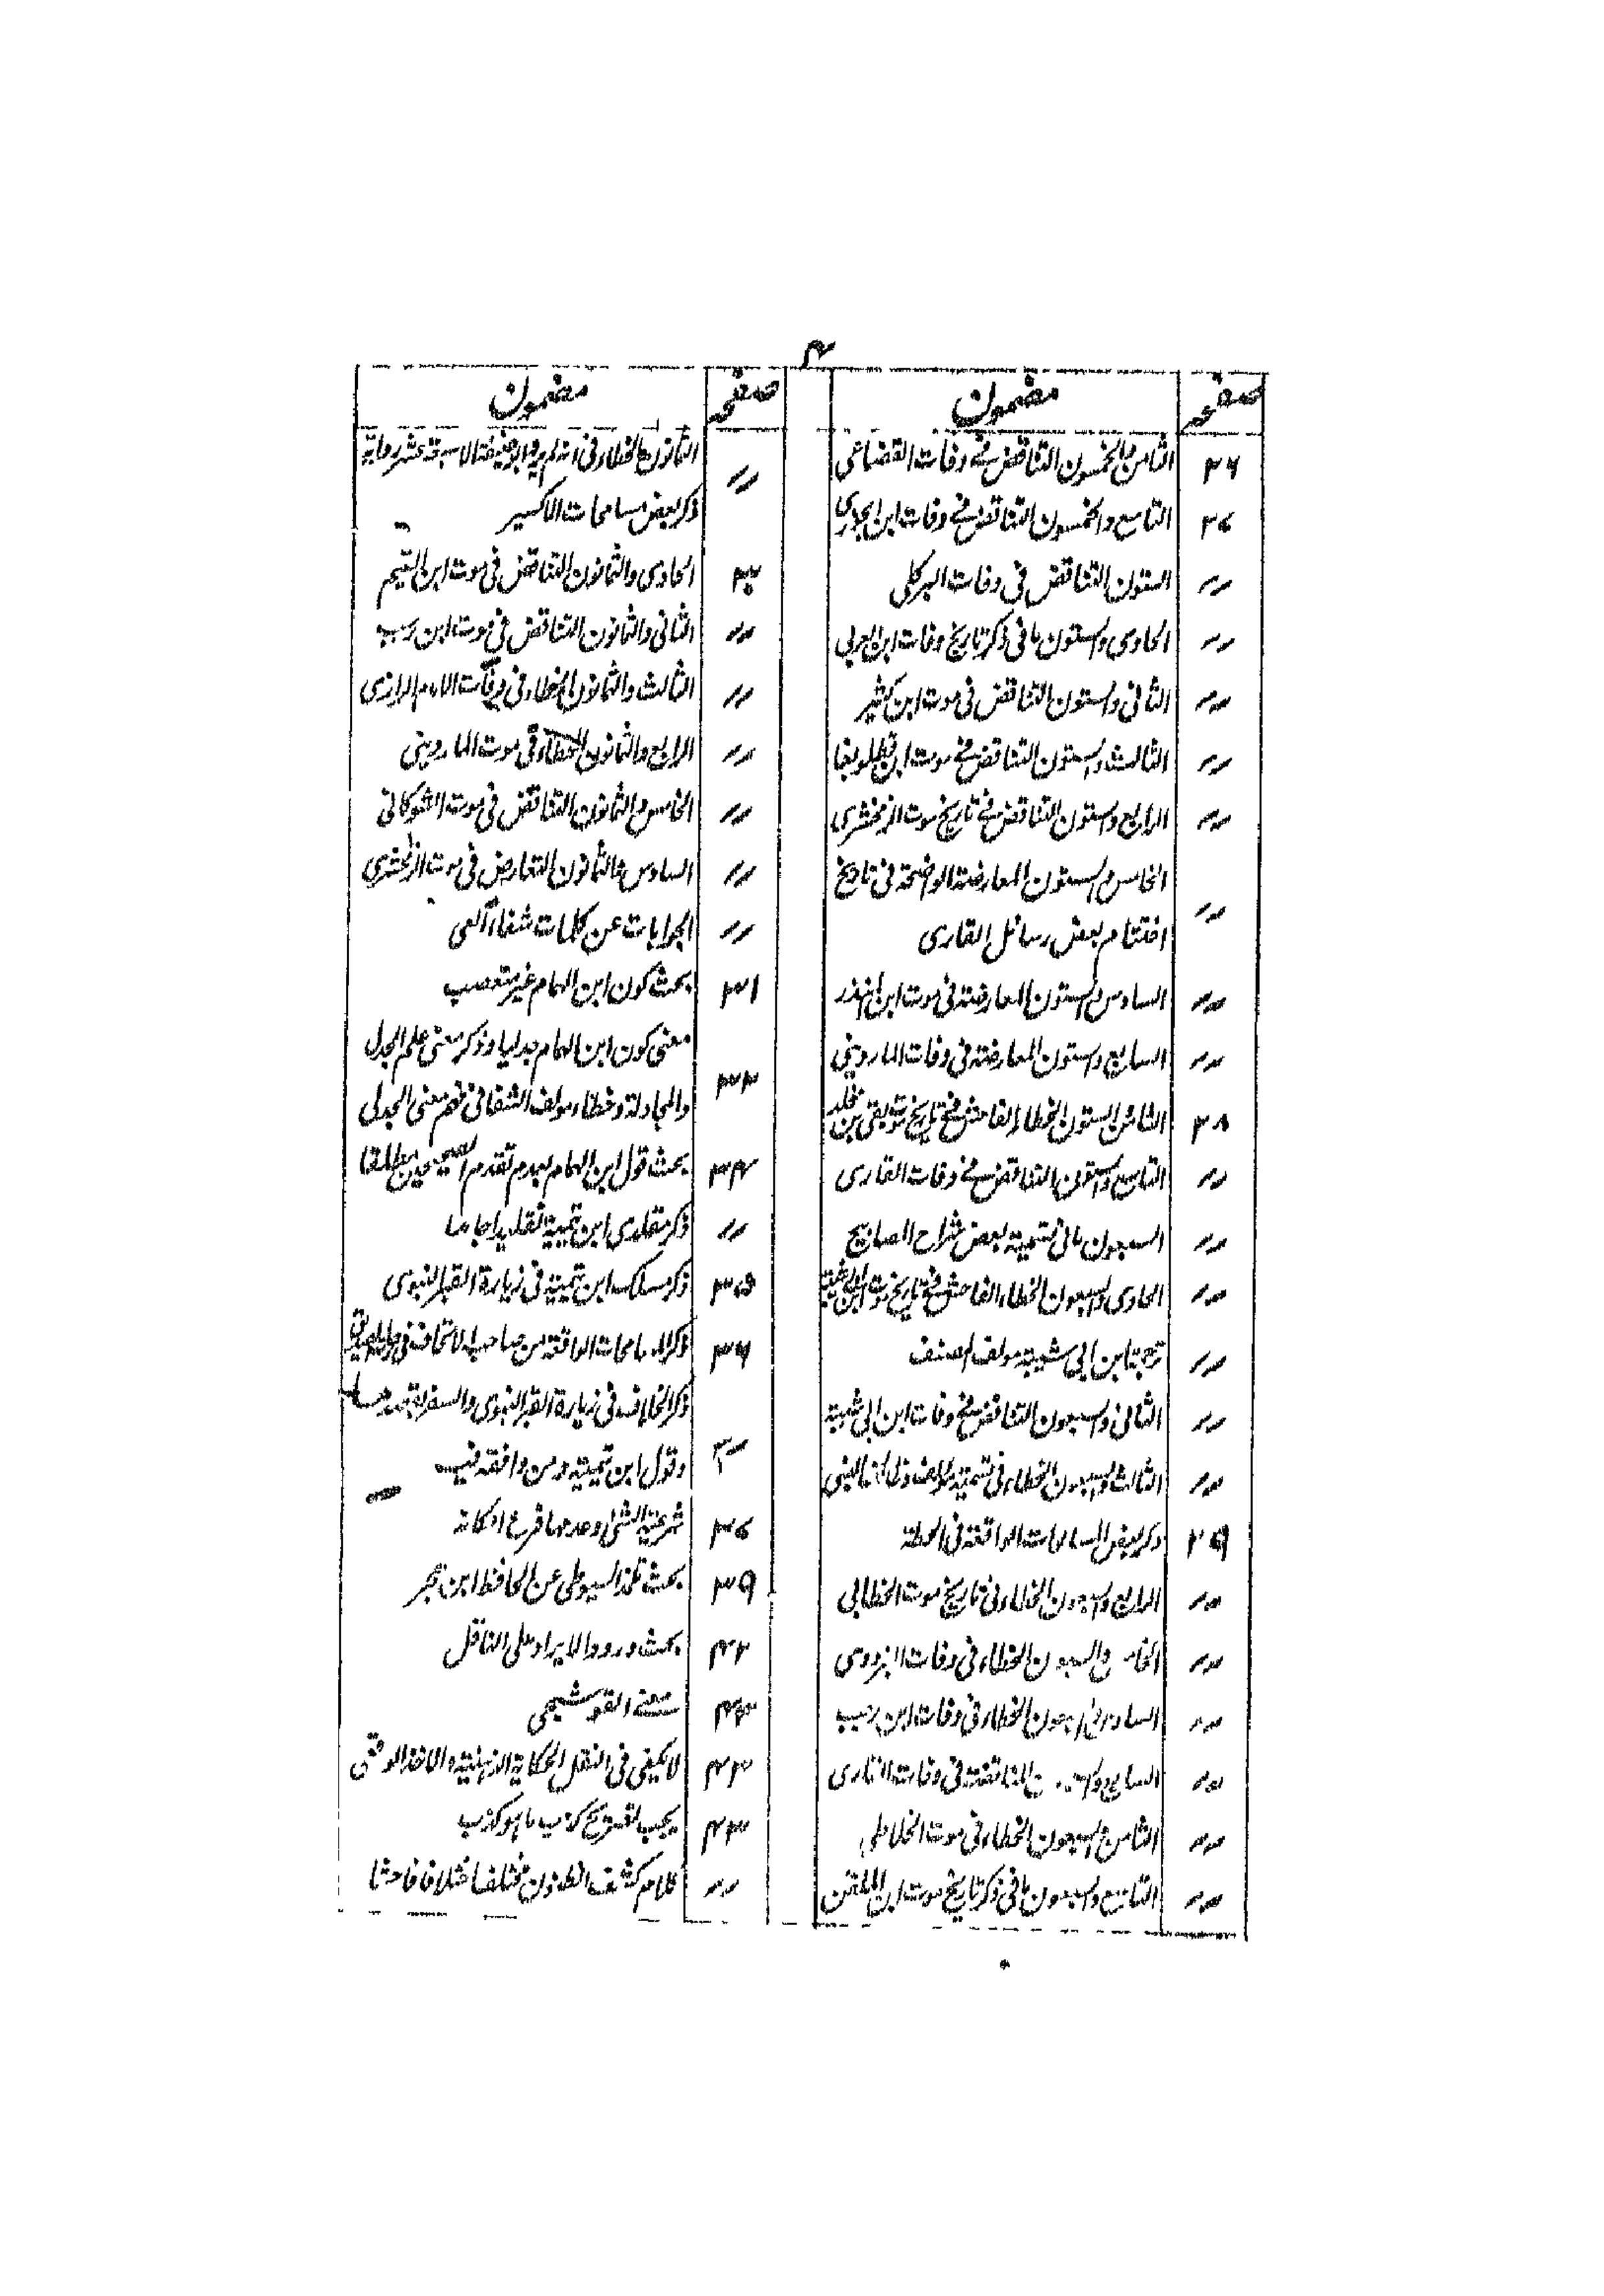 ۴
صفحہ مضمون
۲۶ الثامن والخمسون التناقض فی وفات القضاعی
۲۷ التاسع والخمسون التناقض فی وفات ابن الجوزی
〃 الستون التناقض فی وفات البرکلی
〃 الحادی والستون مافی ذکر تاریخ وفات ابن العربی
〃 الثانی والستون التناقض فی موت ابن کثیر
〃 الثالث والستون التناقض فی موت ابن قطلوبغا
〃 الرابع والستون التناقض فی تاریخ موت الزمخشری
الخامس والستون المعارضۃ الواضحۃ فی تاریخ
〃 اختتام بعض رسائل القاری
〃 السادس والستون المعارضۃ فی موت ابن المنذر
〃 السابع والستون المعارضۃ فی وفات الماردینی
۲۸ الثامن والستون الخطاء الفاحش فی تاریخ موت بقی بن مخلد
〃 التاسع والستون التناقض فی وفات القاری
〃 السبعون مافی تسمیۃ بعض شراح المصابیح
〃 الحادی والسبعون الخطاء الفاحش فی تاریخ موت ابن ابی شیبۃ
〃 ترجمۃ ابن ابی شیبۃ مولف المصنف
〃 الثانی والسبعون التناقض فی وفات ابن ابی شیبۃ
〃 الثالث والسبعون الخطاء فی تسمیۃ مولف
۲۹ ذکر بعض المسامحات الواقعۃ فی الحطۃ
〃 الرابع والسبعون الخطاء فی تاریخ موت الخطابی
〃 الخامس والسبعون الخطاء فی وفات البزدوی
〃 السادس والسبعون الخطاء فی وفات ابن رجب
〃 السابع والسبعون المناقضۃ فی وفات القاری
〃 الثامن والسبعون الخطاء فی موت الخلاطی
〃 التاسع والسبعون مافی ذکر تاریخ موت ابن الملقن
صفحہ مضمون
الثمانون الخطاء فی انہ لم یرو ابو حنیفۃ الا سبعۃ عشر روایۃ
〃 ذکر بعض مسامحات الاکسیر
۳۰ الحادی والثمانون التناقض فی موت ابن القیم
〃 الثانی والثمانون التناقض فی موت ابن رجب
〃 الثالث والثمانون الخطاء فی وفات الامام الرازی
〃 الرابع والثمانون الخطاء فی موت الماردینی
〃 الخامس والثمانون التناقض فی موت الشوکانی
〃 السادس والثمانون التعارض فی موت الزمخشری
〃 الجوابات عن کلمات شفاء العی
۳۱ بحث کون ابن الہمام غیر متعصب
معنی کون ابن الہمام جدلیا وذکر معنی علم الجدل
۳۳ والمجادلۃ وخطاء مولف الشفا فی فہم معنی الجدل
۳۴ بحث قول ابن الہمام بعدم تقدم الصحیحین مطلقا
〃 ذکر مقلدی ابن تیمیۃ تقلیدا جامدا
۳۵ ذکر مسلک ابن تیمیۃ فی زیارۃ القبر النبوی
۳۶ ذکر المسامحات الواقعۃ من صاحب الاتحاف فی
ذکر الخلاف فی زیارۃ القبر النبوی والسفر بقصد
〃 وقول ابن تیمیۃ ومن وافقہ فیہ
۳۷ شرعیۃ الشیٔ وعدمہا فرع امکانہ
۳۹ بحث تلمذ السیوطی عن الحافظ ابن حجر
۴۲ بحث ورود الایراد علی الناقل
۴۳ معنے القوشجی
۴۳ لا یکفی فی النقل الحکایۃ الذہنیۃ والاخذ الوقفی
۴۳ یجب التصریح بکذب ما ہو کذب
〃 کلام کشف الظنون مختلف اختلافا فاحشا